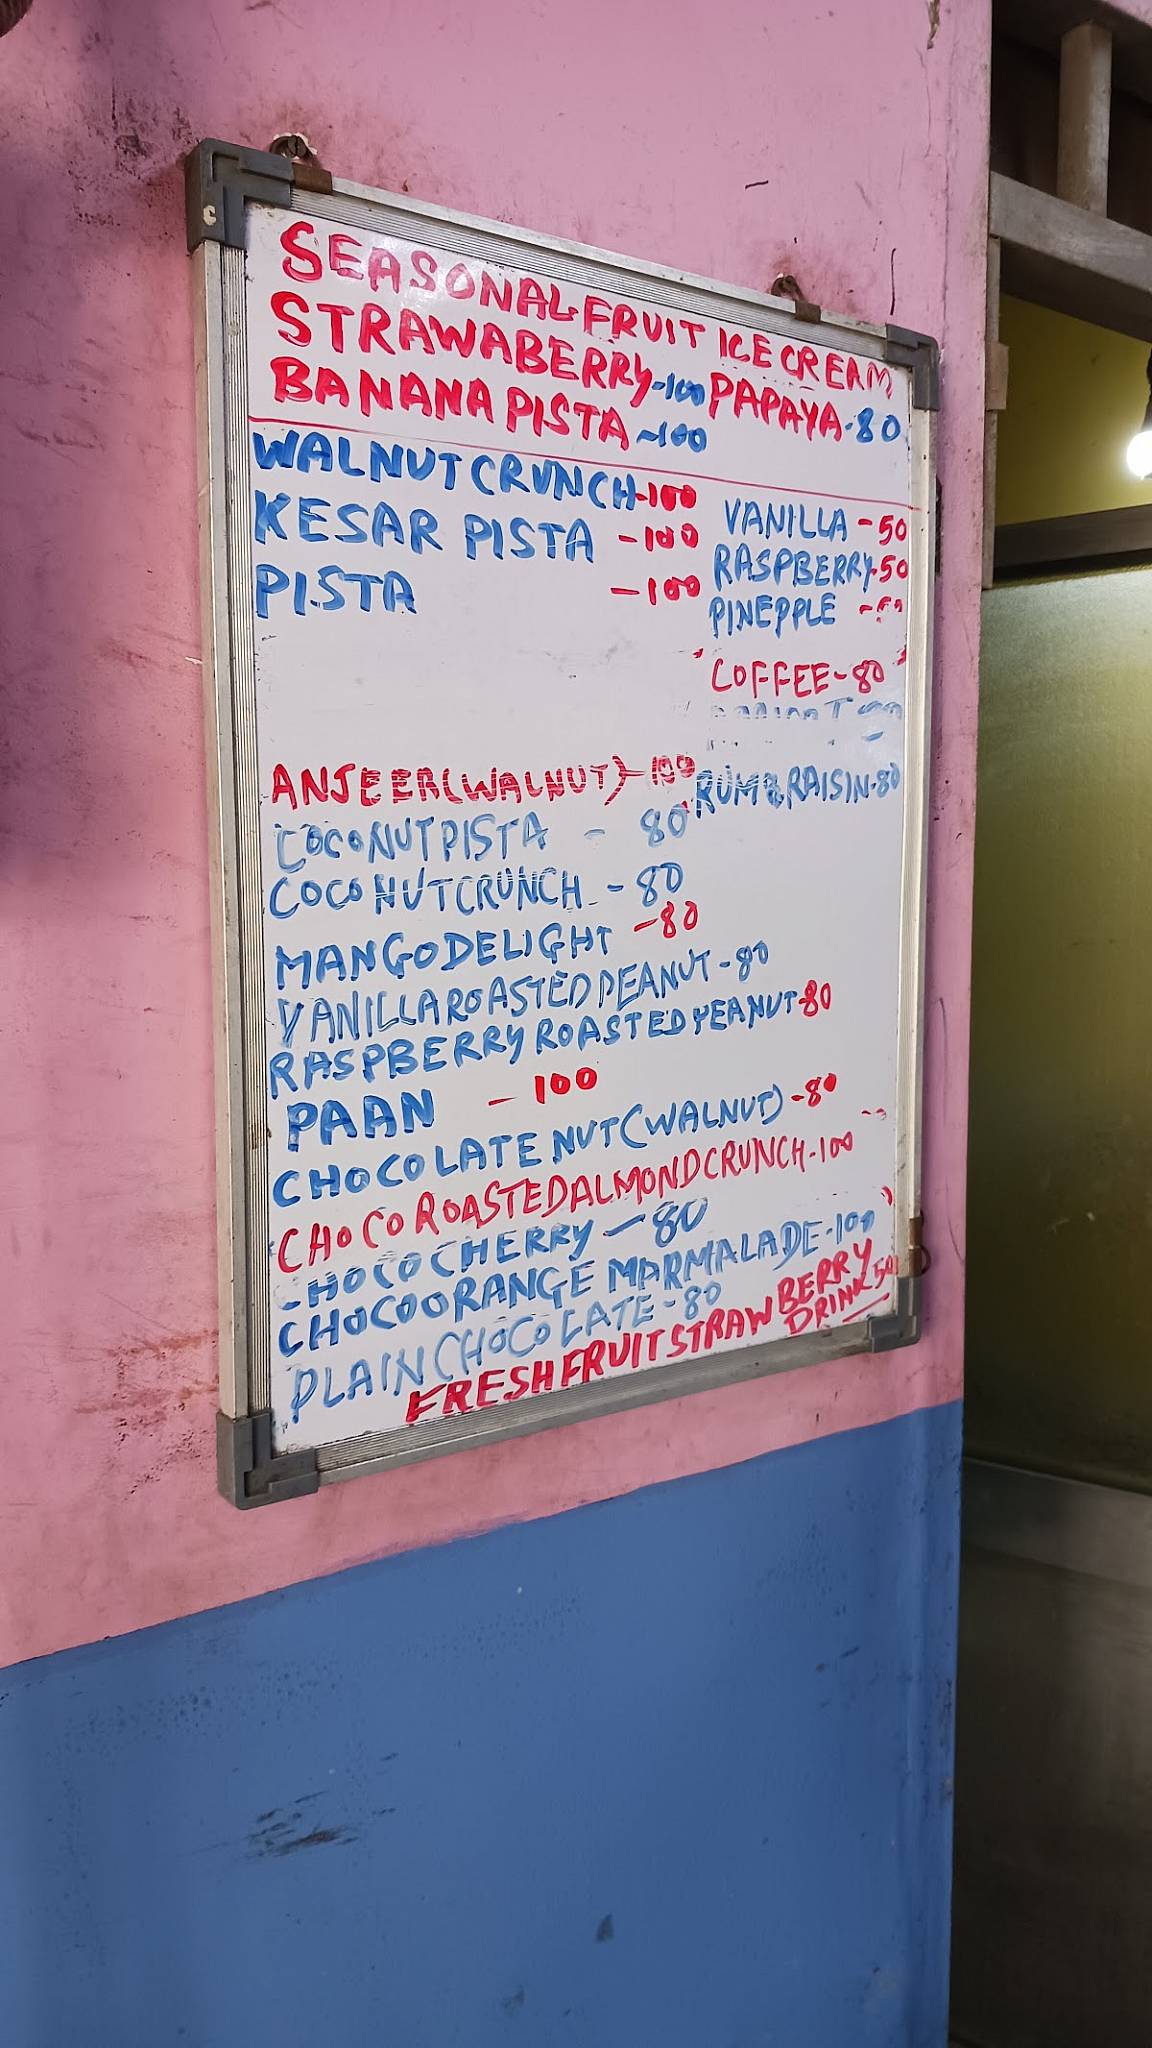 SEASONAL FRUIT ICE CREAM
STRAWABERRY-100 PAPAYA-80
BANANA PISTA-100
WALNUT CRUNCH-100
KESAR PISTA -100
PISTA -100
VANILLA-50
RASPBERRY-50
PINEPPLE
COFFEE-80
ANJEER(WALNUT)-100
RUM&RAISIN-80
COCONUT PISTA - 80
COCONUT CRUNCH -80
MANGO DELIGHT -80
VANILLA ROASTED PEANUT-80
RASPBERRY ROASTED PEANUT-80
PAAN - 100
CHOCOLATE NUT(WALNUT)-80
CHOCO ROASTED ALMOND CRUNCH-100
CHOCO CHERRY-80
CHOCO ORANGE MARMALADE-100
PLAIN CHOCOLATE-80
FRESH FRUIT STRAWBERRY
DRINK 50